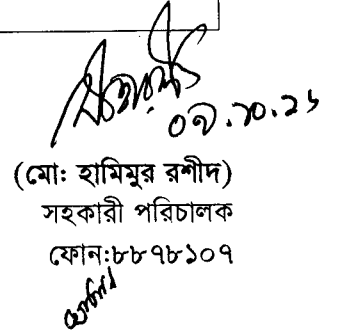 ০৭.১০.২১
(মো: হামিমুর রশীদ)
সহকারী পরিচালক
ফোন:৮৮৭৮১০৭